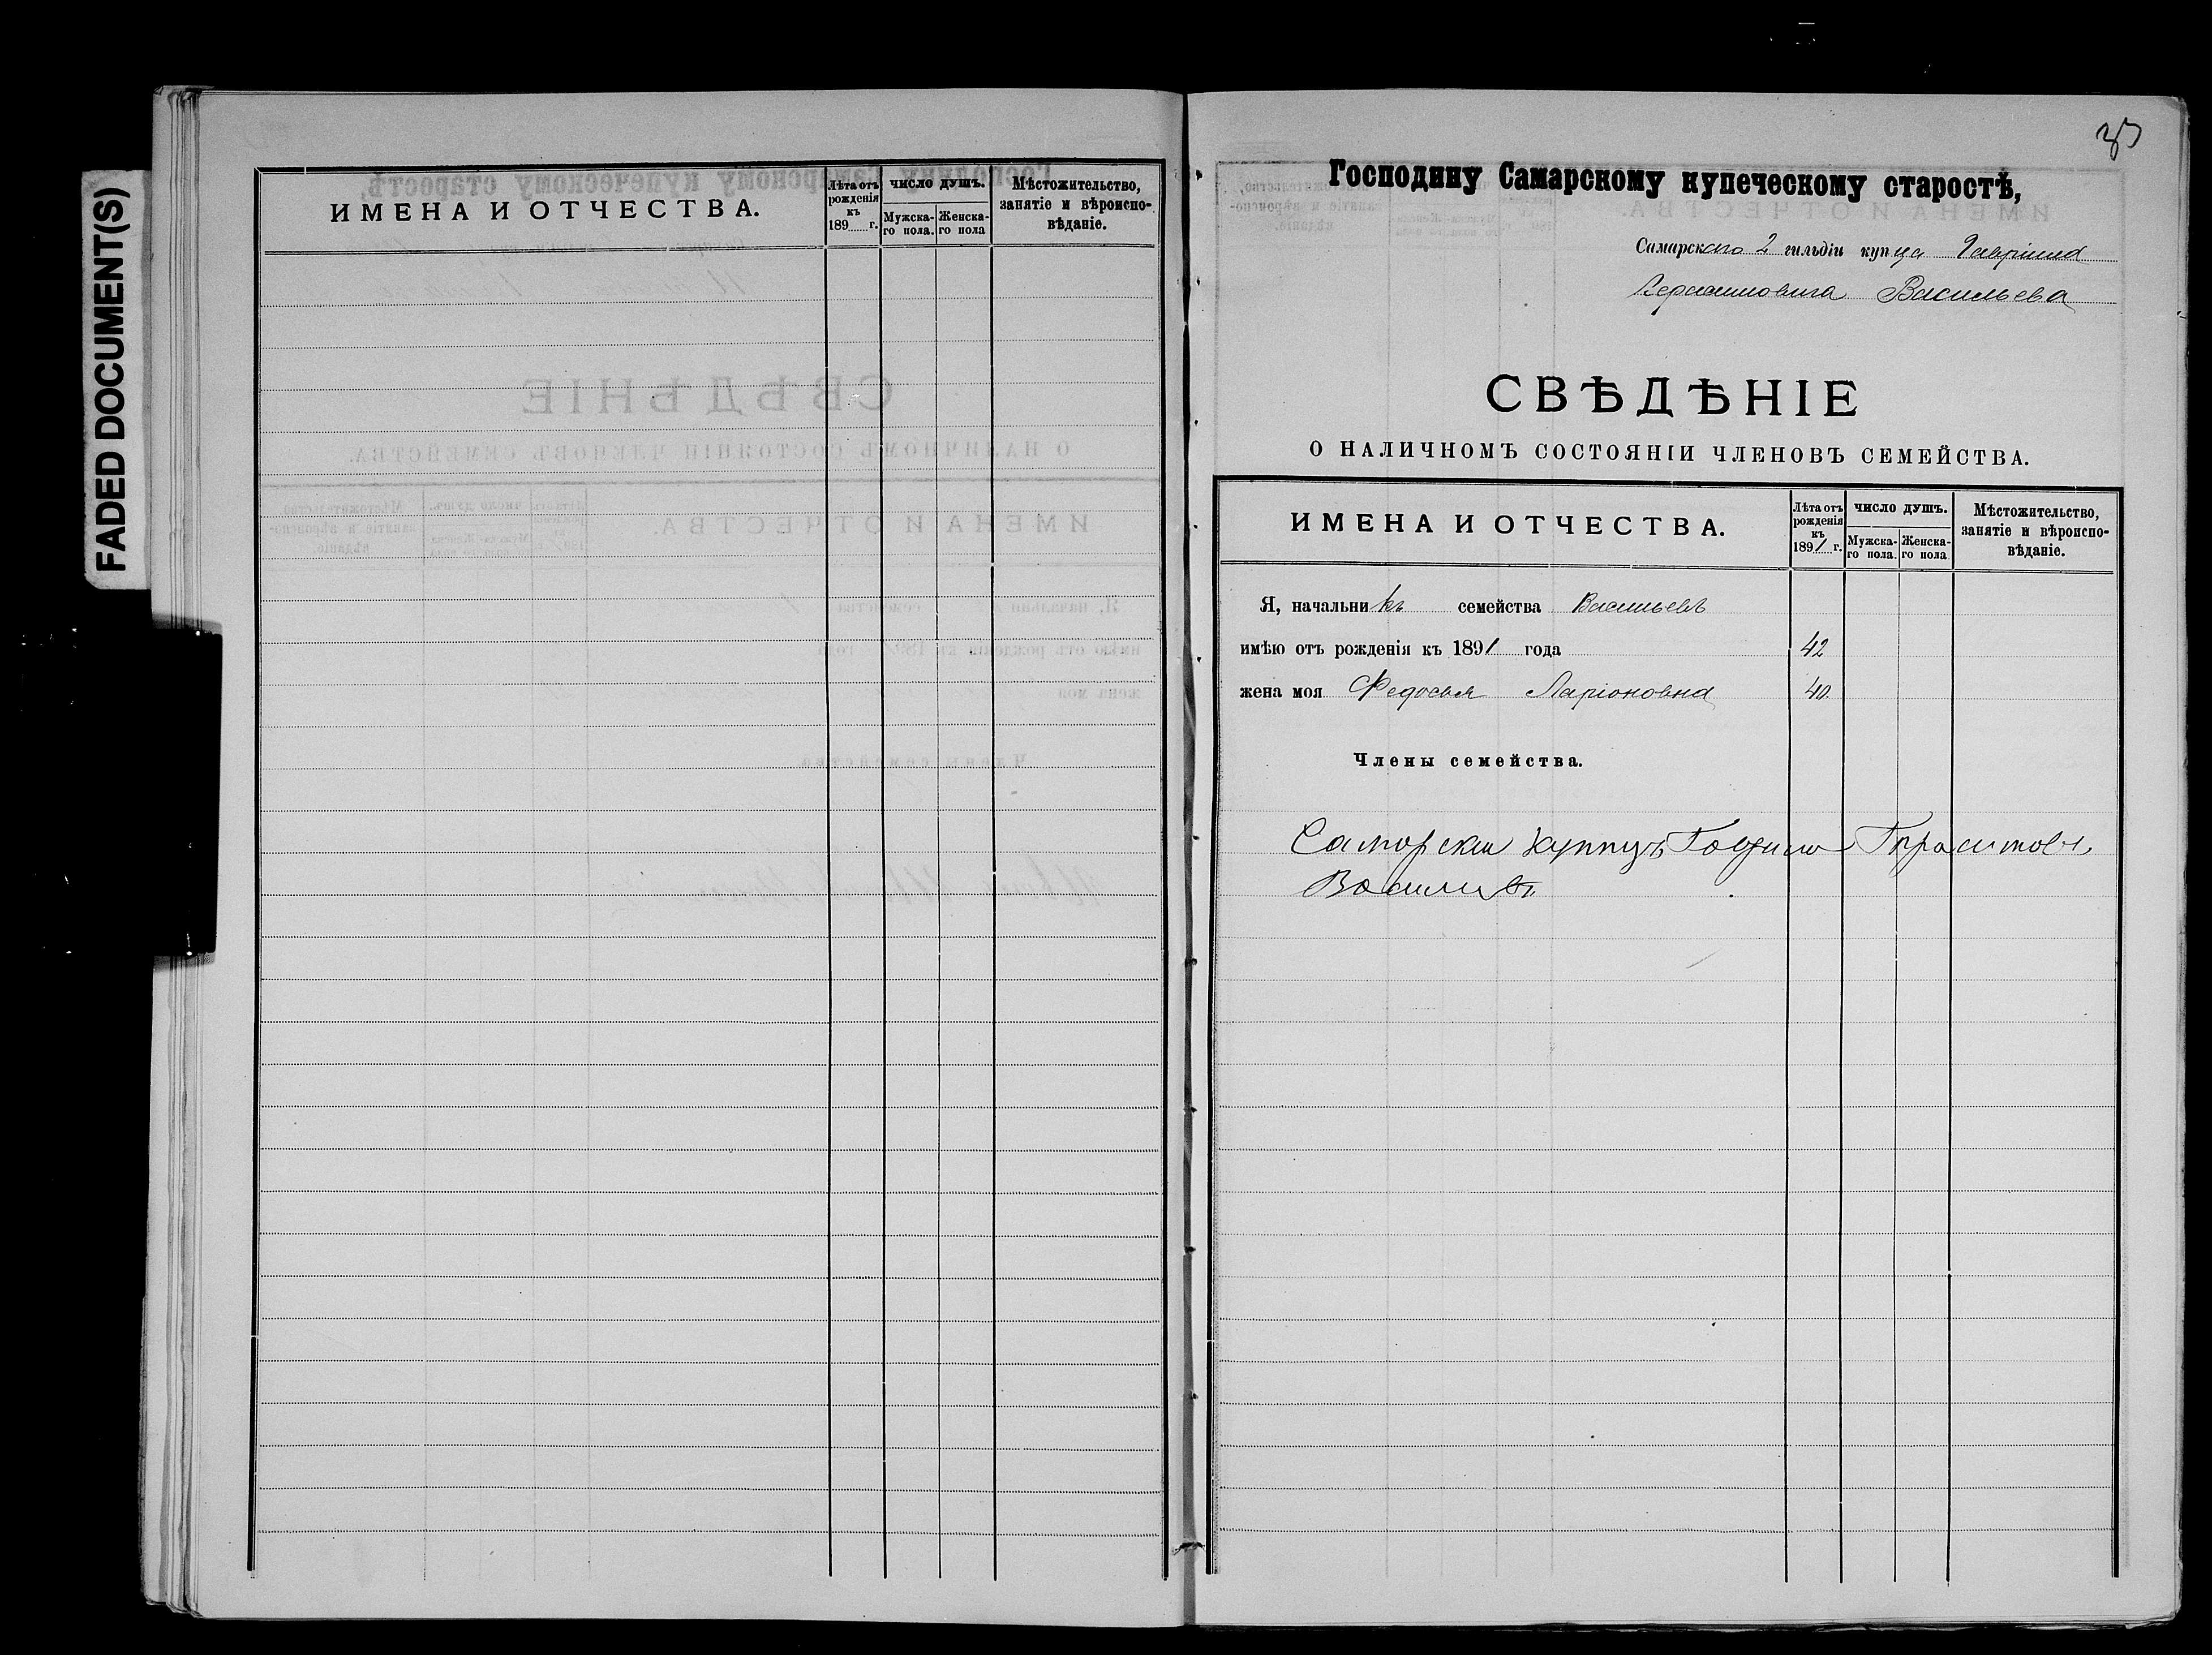 FADED DOCUMENT(S)
ИМЕНА И ОТЧЕСТВА.
Лѣта отъ рожденія къ 189 г.
число душъ.
Мужска-го пола.
Женска-го пола
Мѣстожительство, занятіе и вѣроиспо-вѣданіе.
Господину Самарскому купеческому старостѣ,
Самарскаго 2 гильдіи купца Гавріила
Герасимовича Васильева
СВѢДѢНІЕ
О НАЛИЧНОМЪ СОСТОЯНІИ ЧЛЕНОВЪ СЕМЕЙСТВА.
ИМЕНА И ОТЧЕСТВА.
Лѣта отъ рожденія къ 1891 г.
число душъ.
Мужска-го пола.
Женска-го пола
Мѣстожительство, занятіе и вѣроиспо-вѣданіе.
Я, начальникъ семейства Васильевъ
имѣю отъ рожденія къ 1891 года 42
жена моя Федосья Ларіоновна 40.
Члены семейства.